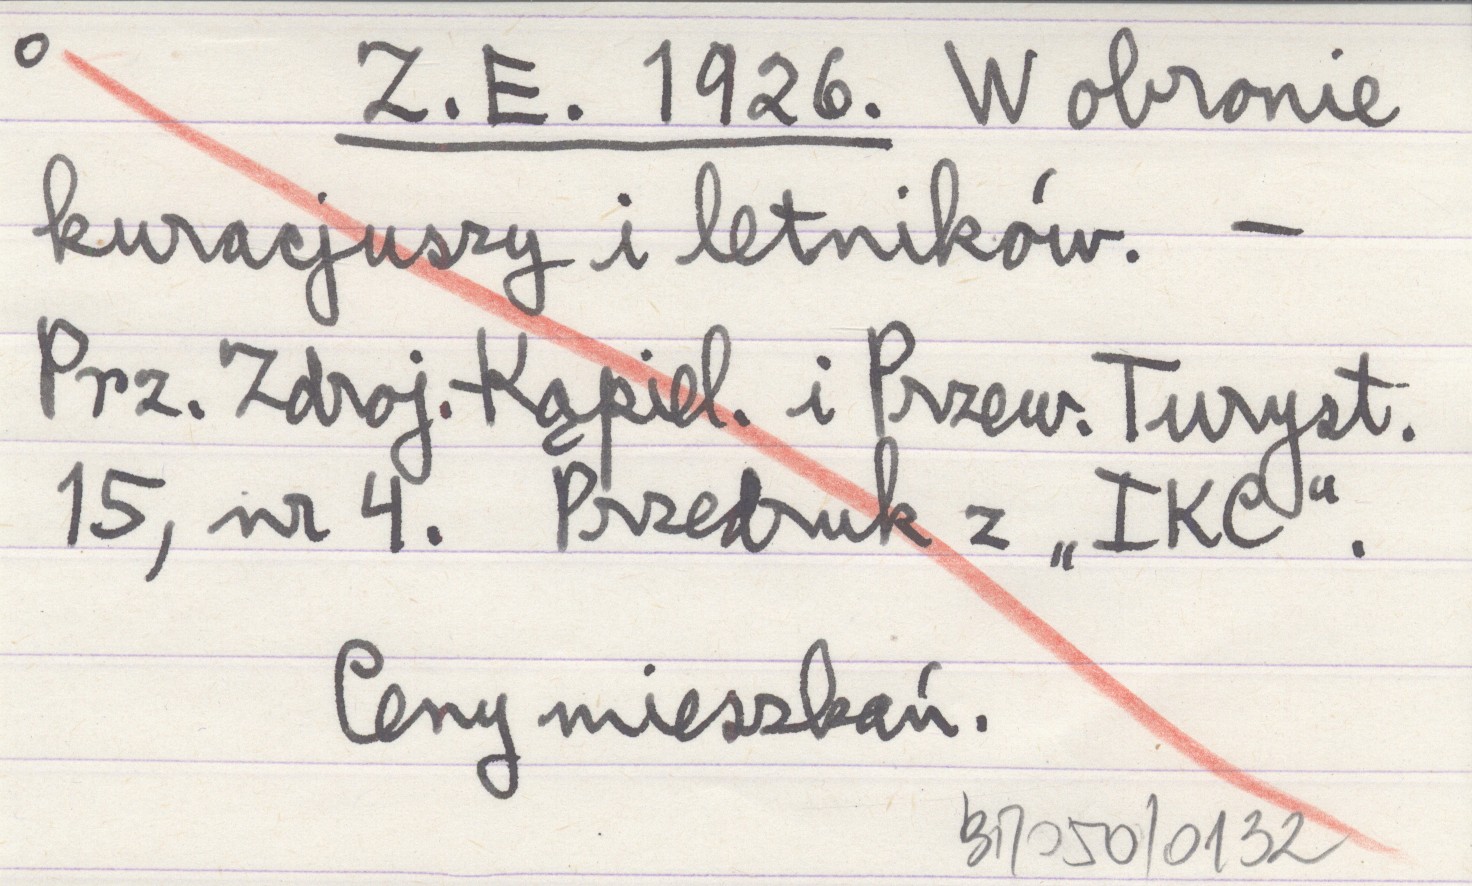 o Z. E. 1926. W obronie
kuracjuszy i letników. —
Prz. Zdroj.-Kąpiel. i Przew. Turyst.
15, nr 4. Przedruk z „IKC“.
Ceny mieszkań.